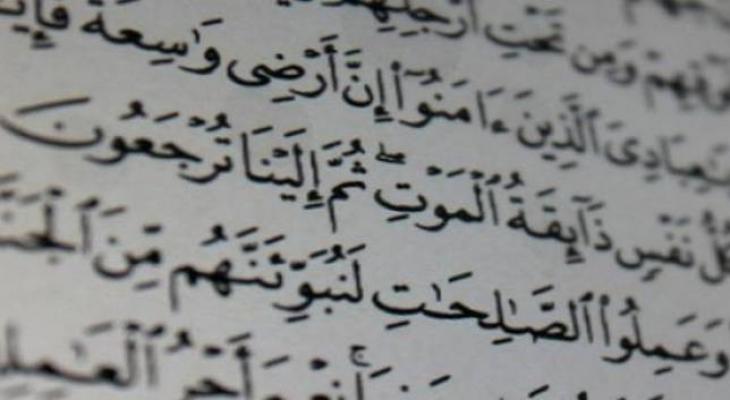 فَوْقِهِمْ وَمِن تَحْتِ أَرْجُلِهِمْ
يَٰعِبَادِىَ ٱلَّذِينَ ءَامَنُوٓا۟ إِنَّ أَرْضِى وَٰسِعَةٌ فَإِيَّٰ
كُلُّ نَفْسٍ ذَآئِقَةُ ٱلْمَوْتِ ۖ ثُمَّ إِلَيْنَا تُرْجَعُونَ
وَعَمِلُوا۟ ٱلصَّٰلِحَٰتِ لَنُبَوِّئَنَّهُم مِّنَ ٱلْجَنَّ
نِعْمَ أَجْرُ ٱلْعَٰمِلِ